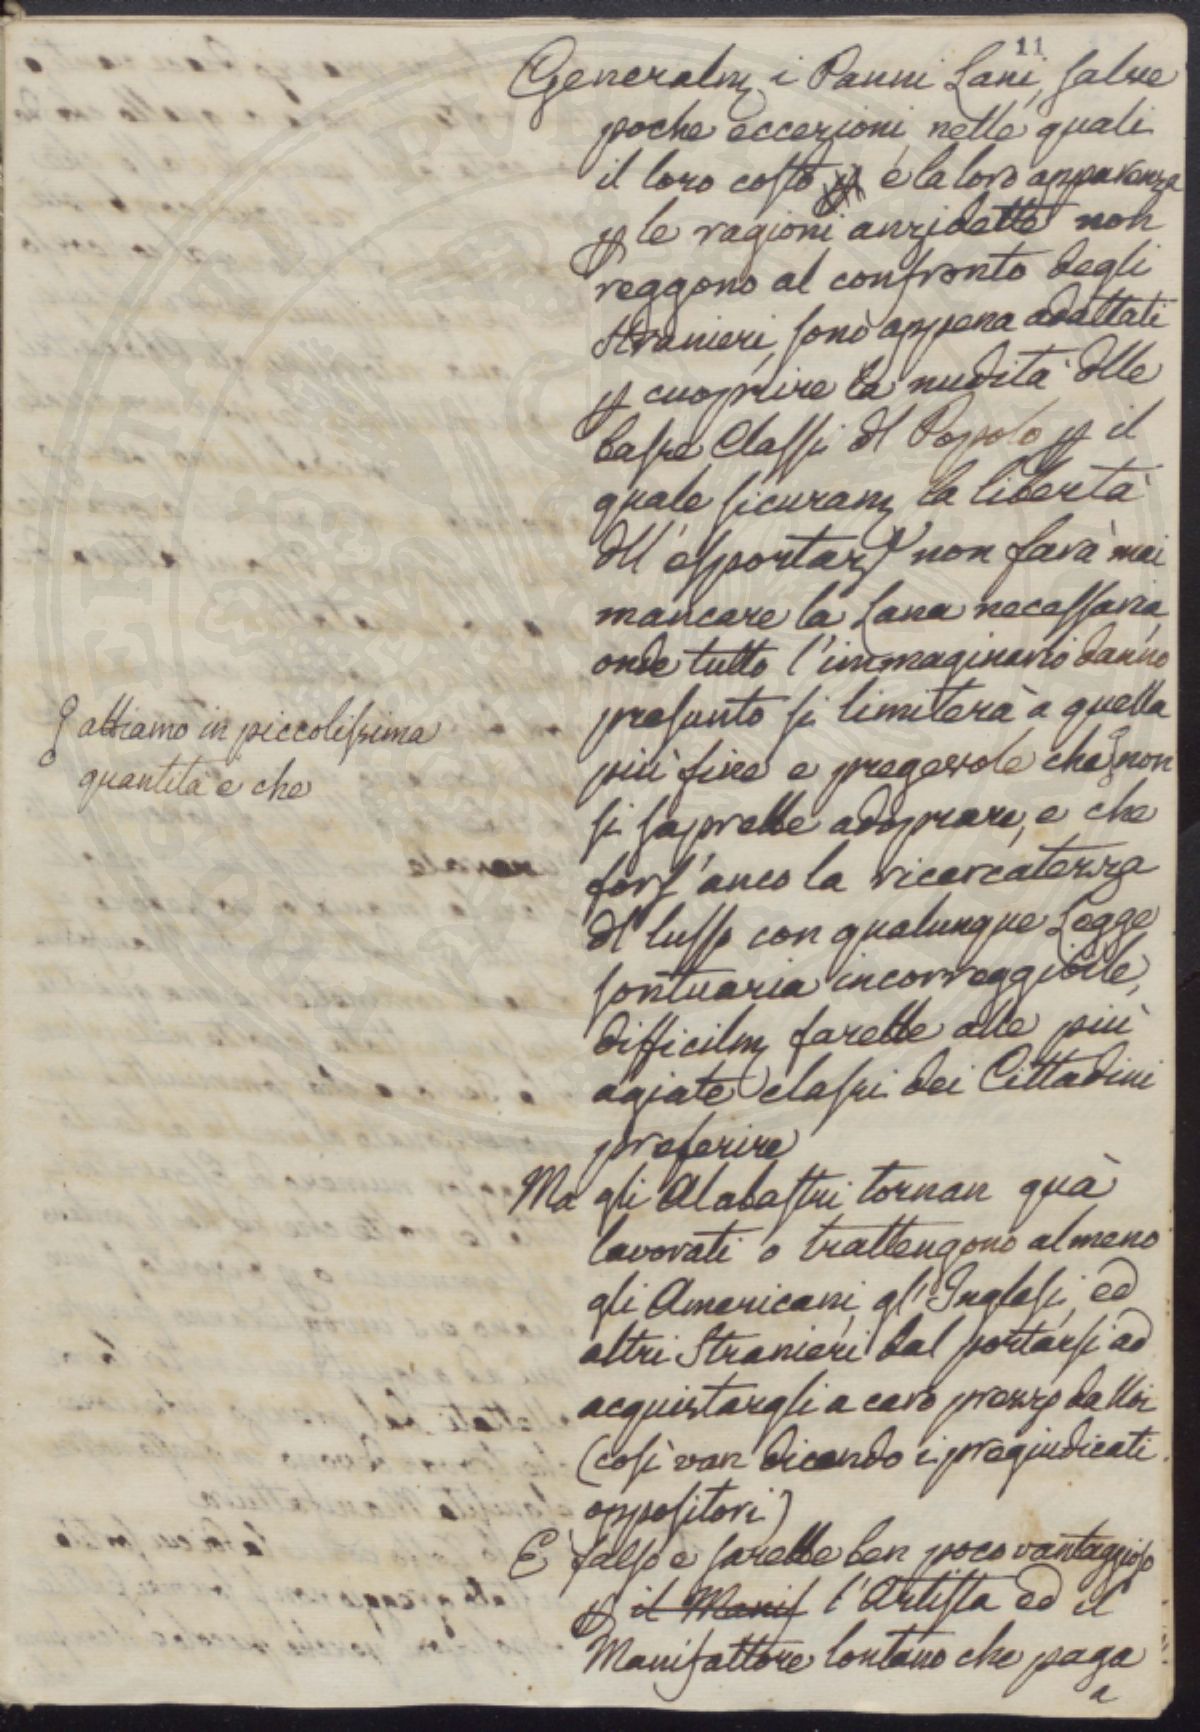 11
Generalm i Panni Lani, salve
poche eccezioni nelle quali
il loro costo e la loro apparenza
p le ragioni anzidette non
reggono al confronto degli
Stranieri, sono appena adattati
p cuoprire la nudità dlle
basse Classi dl Popolo p il
quale sicuram la libertà
dll'esportaz non farà mai
mancare la Lana necessaria
onde tutto l'immaginario danno
presunto si limiterà a quella
più fine e pregevole che non
si saprebbe adoprare, e che
fors'anco la ricercatezza
dl lusso con qualunque Legge
sontuaria incorreggibile,
difficilm farebbe alle più
agiate classi dei Cittadini
preferire
abbiamo in piccolissima
quantità e che
Ma gli Alabastri tornan quà
lavorati o trattengono almeno
gli Americani, gl'Inglesi, ed
altri Stranieri dal portarsi ad
acquistargli a caro prezzo da Noi
(così van dicendo i pregiudicati
oppositori)
È falso e sarebbe ben poco vantaggioso
p il Manif l'Artista ed il
Manifattore lontano che paga
a